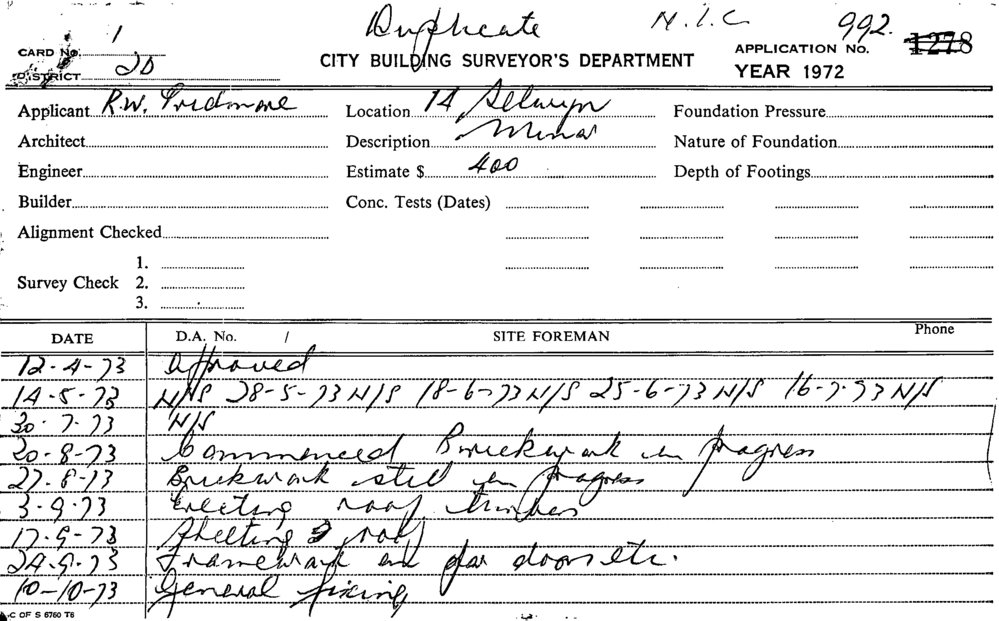 Duplicate N.I.C. 992.
CARD No. 1 APPLICATION No. 1278
DISTRICT 2D CITY BUILDING SURVEYOR'S DEPARTMENT YEAR 1972
Applicant R.W. Location 14 Selwyn Foundation Pressure
Architect Description Minor Nature of Foundation
Engineer Estimate $ 400 Depth of Footings
Builder Conc. Tests (Dates)
Alignment Checked
1.
Survey Check 2.
3.
DATE D.A. No. / SITE FOREMAN Phone
12-4-73 Approved
14-5-73 N/S 28-5-73 N/S 18-6-73 N/S 25-6-73 N/S 16-7-73 N/S
30-7-73 N/S
20-8-73 Commenced Brickwork in progress
27-8-73 Brickwork still in progress
3-9-73 Erecting roof timbers
17-9-73 Sheeting roof
24-9-73 Framework for doors etc.
10-10-73 General fixing
C OF S 6760 T6